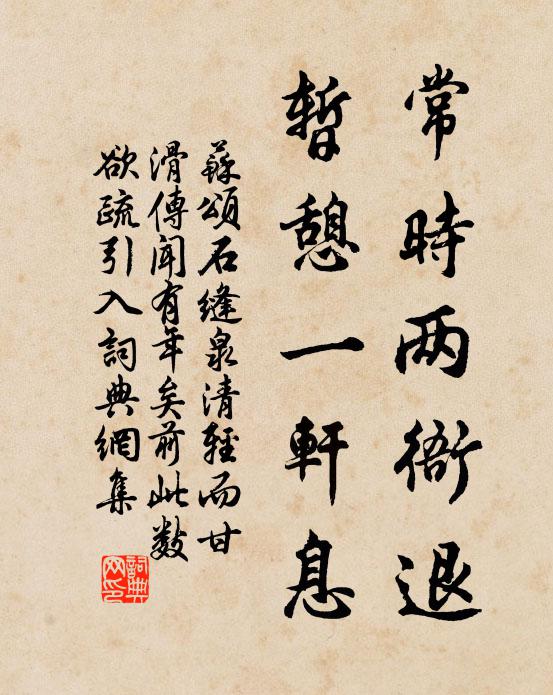 常時两衙退
暫憩一軒息
蘇頌石縫泉清輕而甘
滑傳聞有年矣前此数
欲疏引入詞典網集
詞典网印